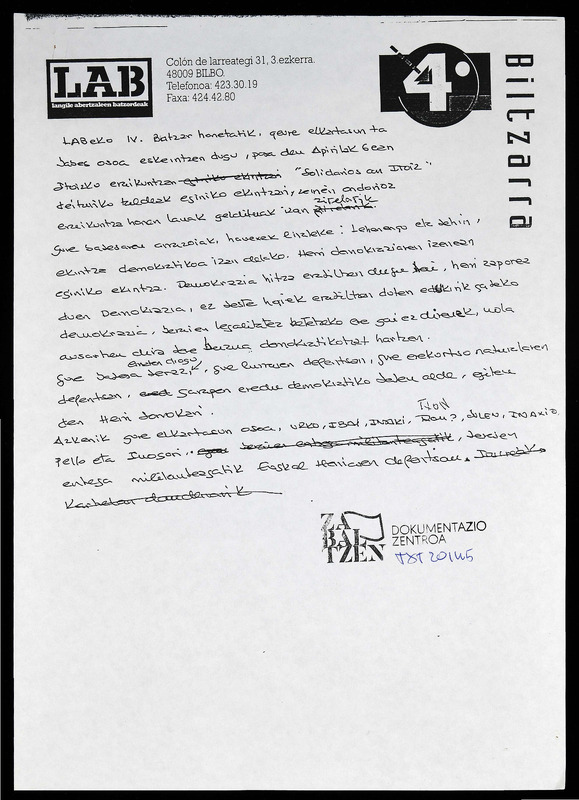 LAB
langile abertzaleen batzordeak
Colón de larreategi 31, 3.ezkerra.
48009 BILBO.
Telefonoa: 423.30.19
Faxa: 424.42.80
4
Biltzarra
LABeko IV. Batzar honetatik, geure elkartasun ta
babes osoa eskeintzen dugu, pasa den Apirilak 6ean
Itoizko eraikuntzan "Solidarios con Itoiz"
deituriko taldeak eginiko ekintzari, zeinen ondorioz
eraikuntza horren lanak geldituak izan zirelarik
gure babesaren arrazoiak, hauexek lirateke: Lehenengo eta behin,
ekintza demokratikoa izan delako. Herri demokraziaren izenean
eginiko ekintza. Demokrazia hitza erabiltzen dugu bai, herri zaporea
duen Demokrazia, ez beste haiek erabiltzen duten edukirik gabeko
demokrazia, beraien legalitatea betetzeko ere gai ez direnek, nola
ausartzen dira bere burua demokratikotzat hartzen.
gure babesa ematen diogu, gure lurraren defentsan, gure naturalaren
defentsan, garapen eredu demokratiko baten alde, egiten
den Herri honekan.
Azkenik gure elkartasun osoa, URKO, IBAI, INAKI, IÑON, JULEN, INAKI
Pello eta beraien
entega militantzagatik Euskal Herriaren defentsan.
ZABALTZEN
DOKUMENTAZIO
ZENTROA
TXT 20145